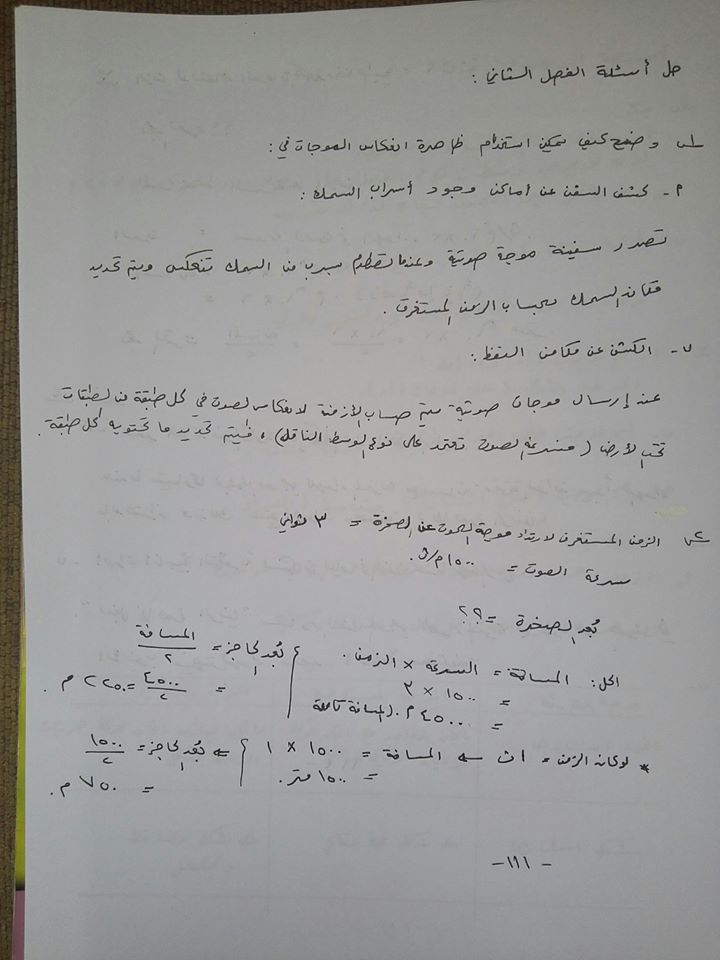 حل أسئلة الفصل الثاني :
س١ وضح كيف يمكن استخدام ظاهرة انعكاس الموجات في :
٢- كشف السفن عن أماكن وجود أسراب السمك :
تصدر سفينة موجة صوتية وعندما تصطدم بسرب من السمك تنعكس ويتم تحديد
مكان السمك بحساب الزمن المستغرق .
ب- الكشف عن مكامن النفط :
عند إرسال موجات صوتية يتم حساب الأزمنة لانعكاس الصوت في كل طبقة من طبقات
تحت الأرض ( فسرعة الصوت تعتمد على نوع الوسط الناقل ) ، فيتم تحديد ما تحتويه كل طبقة .
س٢ الزمن المستغرق لارتداد موجة الصوت عن الصخرة = ٣ ثواني
سرعة الصوت = ١٥٠٠ م/ث .
بُعد الصخرة = ؟؟
الحل : المسافة = السرعة × الزمن . بُعد الحاجز = المسافة / ٢
= ١٥٠٠ × ٣ = ٤٥٠٠ / ٢ = ٢٢٥٠ م .
= ٤٥٠٠ م . ( المسافة كاملة
* لو كان الزمن = ١ ث ⇐ المسافة = ١٥٠٠ × ١ ⇐ بُعد الحاجز = ١٥٠٠ / ٢
= ١٥٠٠ متر . = ٧٥٠ م .
- ١١١ -